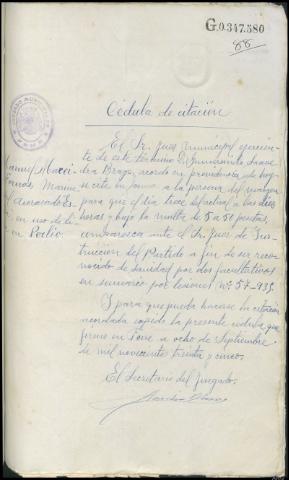 G.0.347.580
88
Cédula de citación
El Sr. Juez municipal ejercien-
te de este término D. Gumersindo
Braga, acordó en providencia de hoy
se cite en forma a la persona del margen
para que el día trece del actual a las diez
horas y bajo la multa de 5 a 50 pesetas,
comparezca ante el Sr. Juez de Ins-
trucción del Partido a fin de ser reco-
nocido de sanidad por dos facultativos
en sumario por lesiones nº 57-935.
Y para que pueda hacerse la citación
acordada expido la presente cédula que
firmo en a ocho de Septiembre
de mil novecientos treinta y cinco.
El Secretario del Juzgado.
Manuel